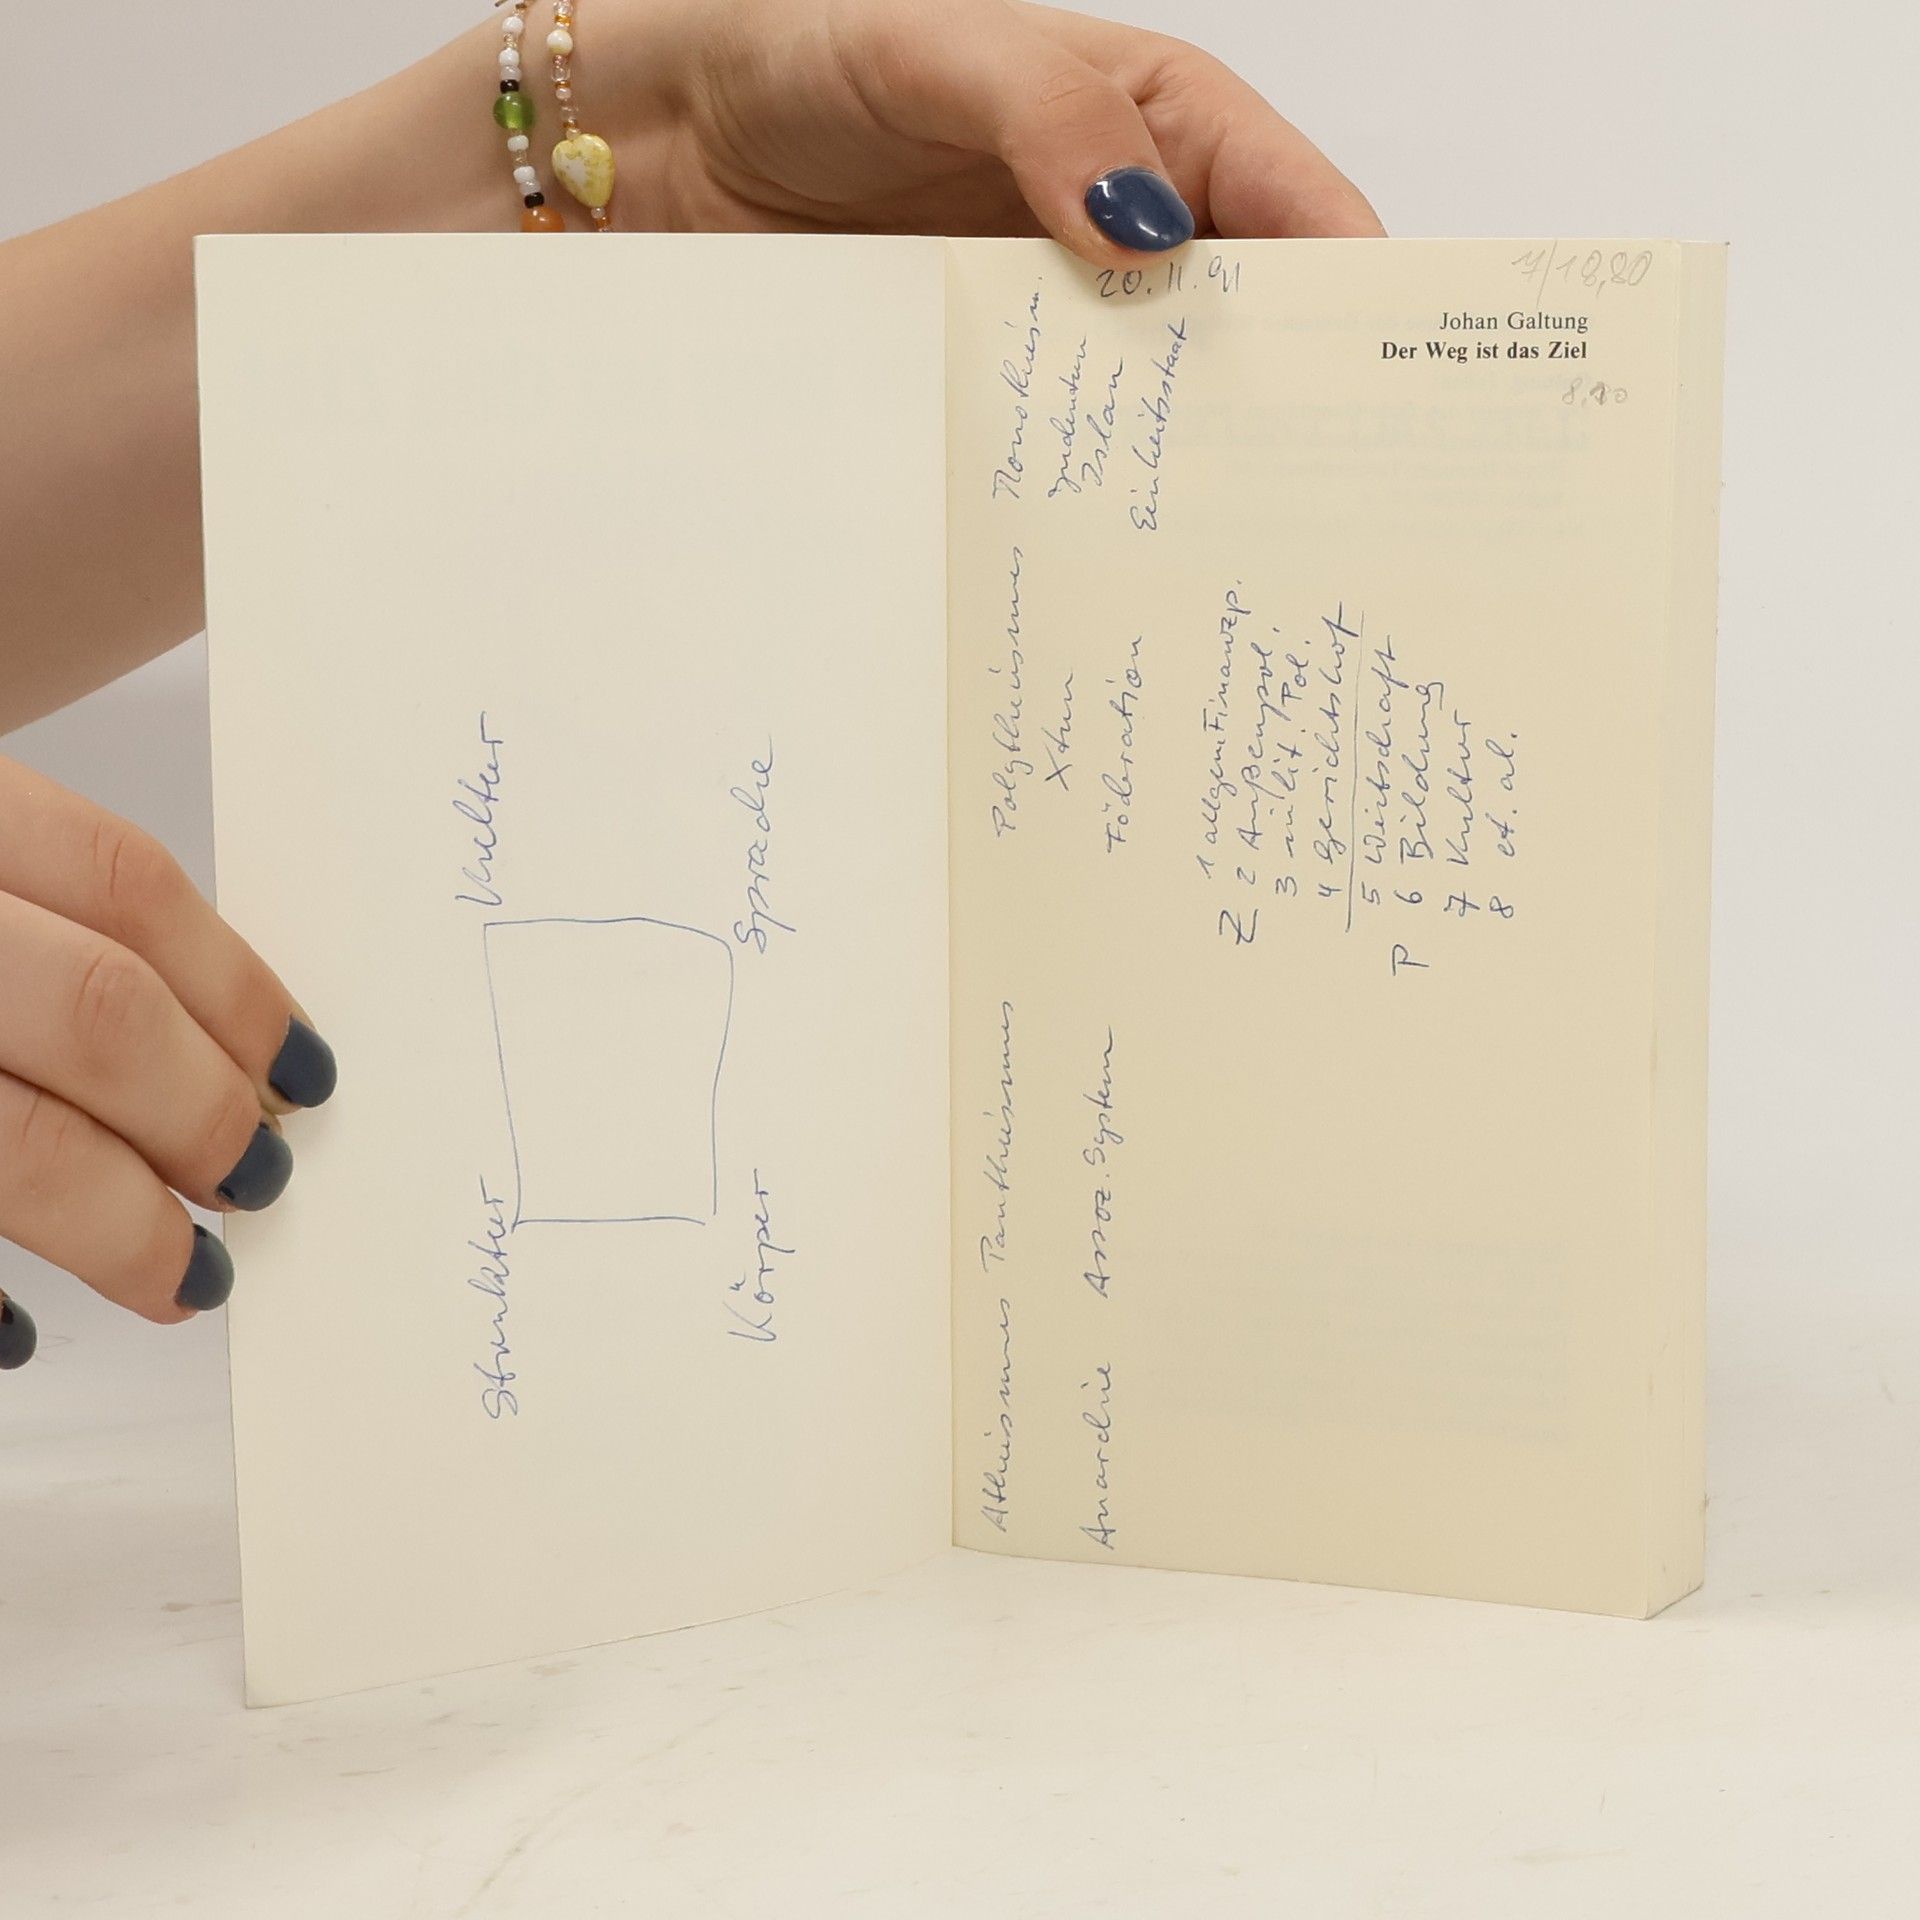 Struktur Kultur
Körper Sprache
20.11.91
7/18,80
Johan Galtung
Der Weg ist das Ziel
Atheismus Pantheismus Polytheismus Monotheism.
Xtum Judentum
Islam
Anarchie Assoz. System Föderation Einheitsstaat
Z 1 allgem. Finanzp.
2 Außenpol.
3 milit. Pol.
4 Gerichtshof
P 5 Wirtschaft
6 Bildung
7 Kultur
8 et. al.